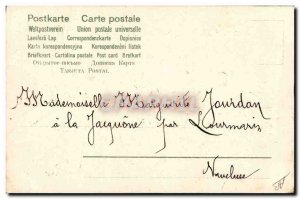 Postkarte Carte postale
Weltpostverein Union postale universelle
Levelező-Lap Correspondenzkarte Dopisnice
Karta korespondencyjna Korespondenční lístek
Briefkaart Cartolina postale Post card Brefkort
Открытое письмо Дописна Карта
Tarjeta Postal
Mademoiselle Marguerite Jourdan
à la Jacquône par Lourmarin
Vaucluse